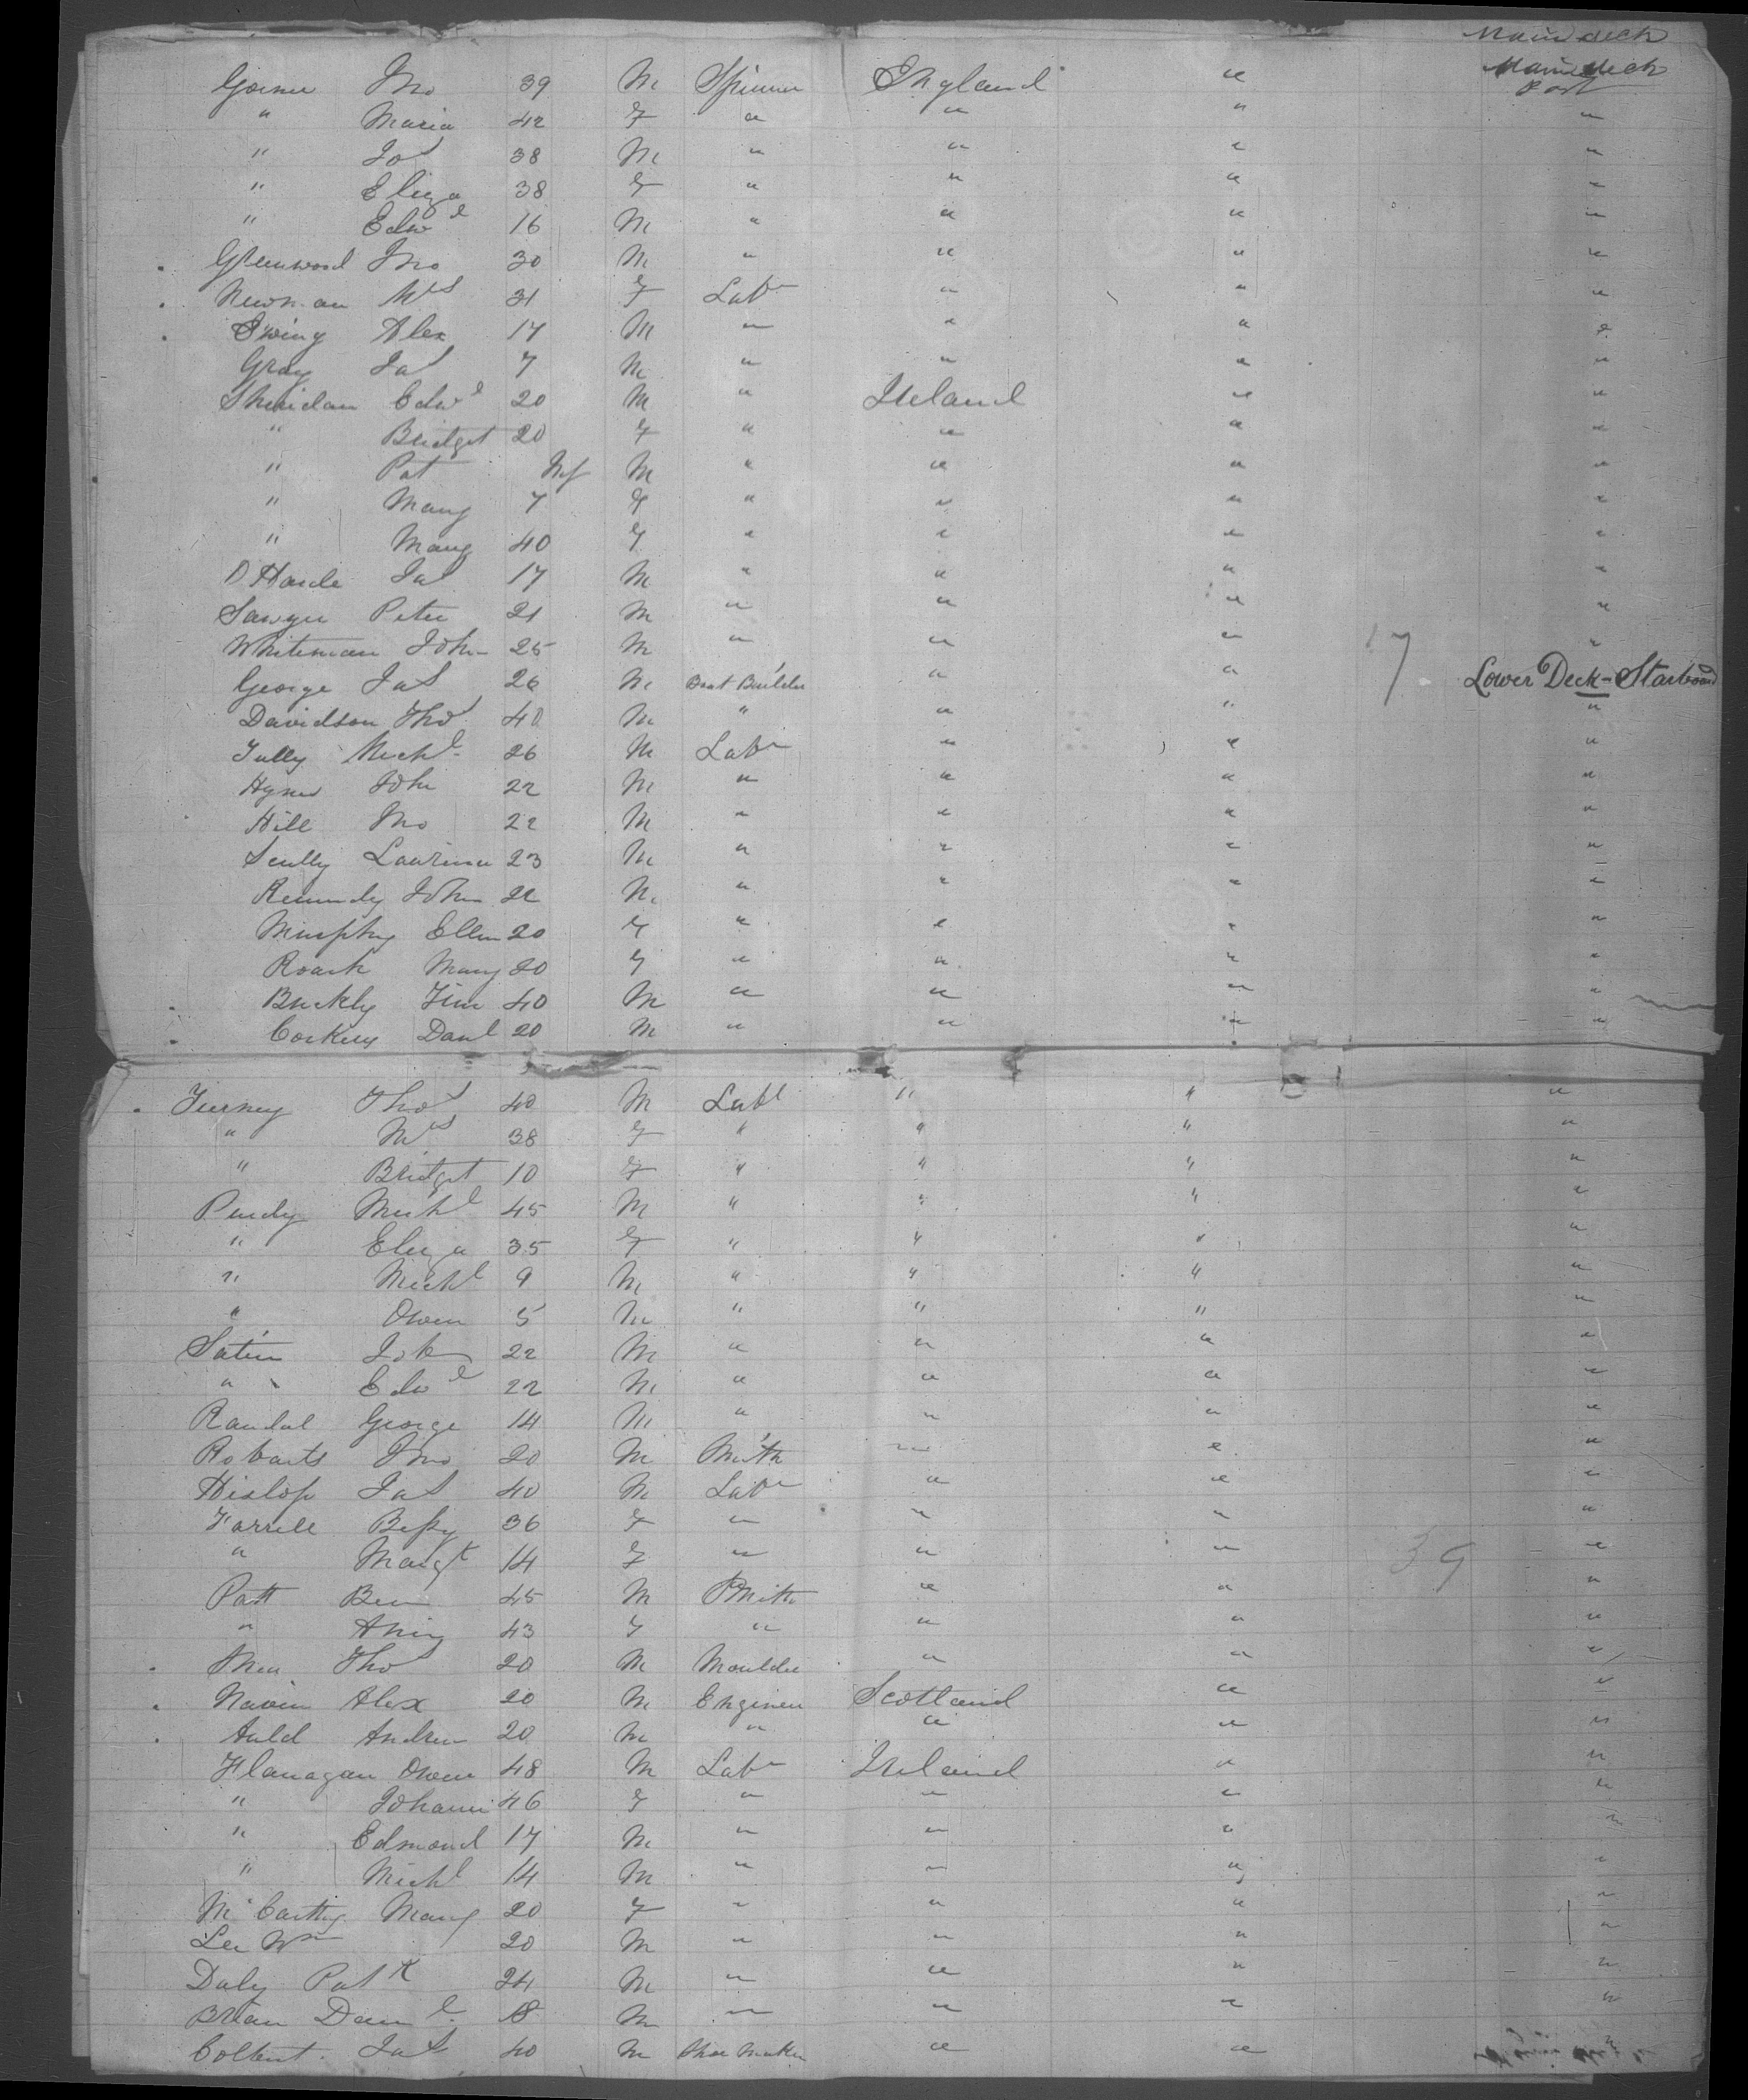 Main deck
Gorner Jno 39 M Spinner England " Main deck Port
" Maria 42 F " " " "
" Jos 38 M " " " "
" Eliza 38 F " " " "
" Edwd 16 M " " " "
Greenwood Jno 30 M " " " "
Newman Mrs 31 F Labr " " "
Ewing Alex 17 M " " " "
Gray Jas 7 M " " " "
Sheridan Edwd 20 M " Ireland " "
" Bridget 20 F " " " "
" Pat Inf M " " " "
" Mary 7 F " " " "
" Mary 40 F " " " "
O'Harde Jas 17 M " " " "
Sawyer Peter 21 M " " " "
Whiteman John 25 M " " " "
George Jas 26 M Boat Builder " " 17 Lower Deck - Starboard
Davidson Thos 40 M " " " "
Tully Michl 26 M Labr " " "
Hynes John 22 M " " " "
Hill Jno 22 M " " " "
Scully Laurence 23 M " " " "
Kennedy John 22 M " " " "
Murphy Ellen 20 F " " " "
Roark Mary 20 F " " " "
Buckly Tim 40 M " " " "
Corkery Danl 20 M " " " "
Tierney Thos 40 M Labr " " "
" Mrs 38 F " " " "
" Bridget 10 F " " " "
Purdy Michl 45 M " " " "
" Eliza 35 F " " " "
" Michl 9 M " " " "
" Owen 5 M " " " "
Satin Job 22 M " " " "
" Edwd 22 M " " " "
Randal George 14 M " " " "
Robarts Jno 20 M Smith " " "
Hislop Jas 40 M Labr " " "
Farrell Bessy 36 F " " " "
" Margt 14 F " " " 39 "
Patt Ben 45 M Smith " " "
" Amy 43 F " " " "
Thos 20 M Moulder " " "
Alex 20 M Engineer Scotland " "
Auld Andrew 20 M " " " "
Flanagan Owen 48 M Labr Ireland " "
" Johanna 46 F " " " "
" Edmond 17 M " " " "
" Michl 14 M " " " "
McCarthy Mary 20 F " " " "
Lee Wm 20 M " " " "
Daly Patk 24 M " " " "
Brian Danl 18 M " " " "
Colbert Jas 40 M Shoe Maker " " "